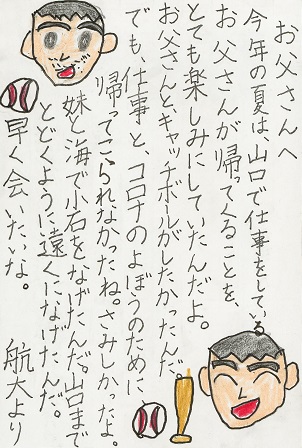 お父さんへ
今年の夏は、山口で仕事をしている
お父さんが帰ってくることを、
とても楽しみにしていたんだよ。
お父さんと、キャッチボールがしたかったんだ。
でも、仕事と、コロナのよぼうのために
帰ってこられなかったね。さみしかったよ。
妹と海で小石をなげたんだ。山口まで
とどくように遠くになげたんだ。
早く会いたいな。
航大より